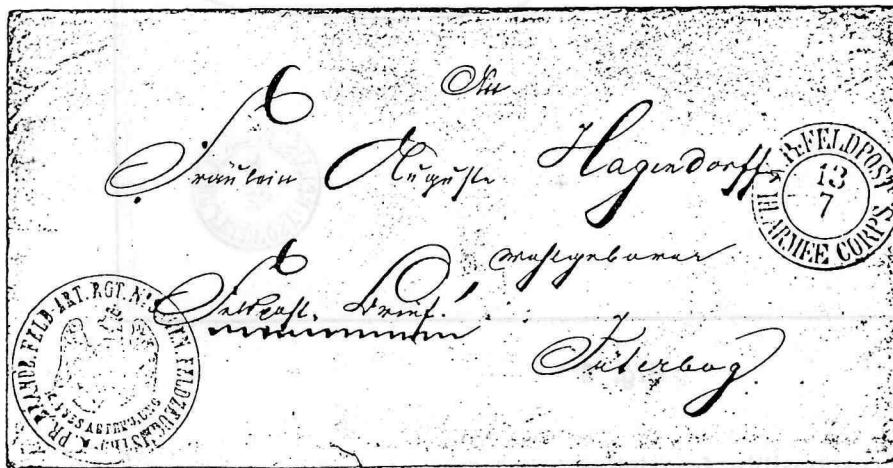 An
Fräulein Auguste Hagendorff
Wohlgeboren
Feldpost. Brief.
Jüterbog.
K. PR. FELDPOST
13
7
III. ARMEE CORPS
K. PR. BRANDB. FELD-ART. RGT. No. FELDZEUGMSTR.